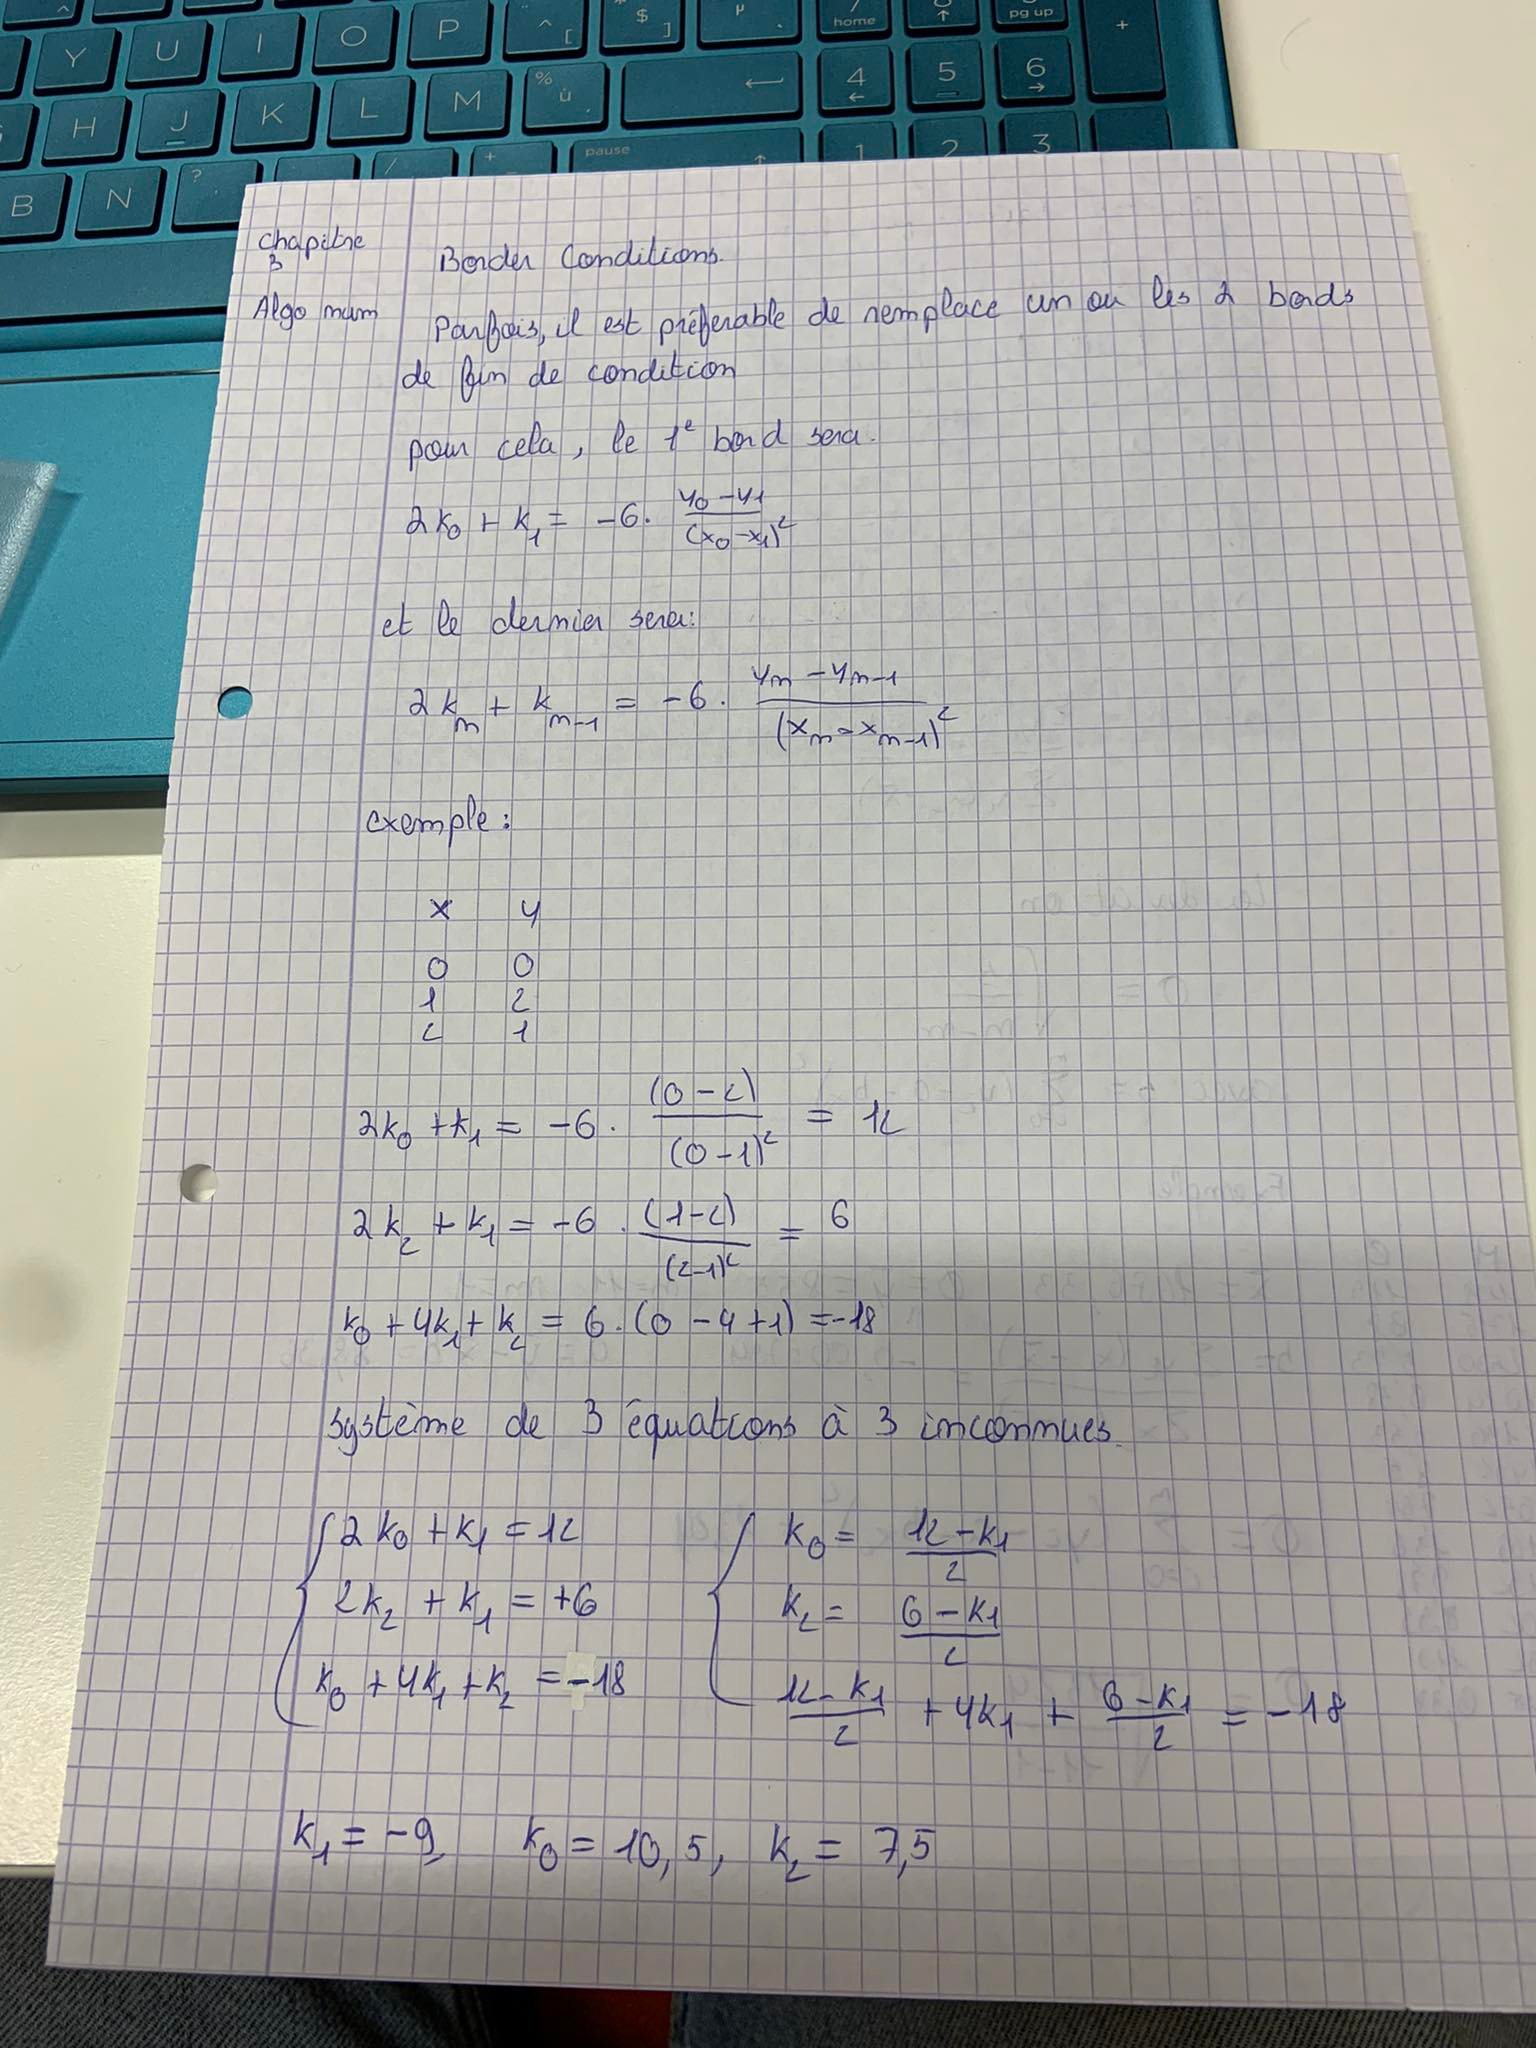 Y U I O P ^ [ $ ] µ 7 home 8 ↑ 9 pg up +
H J K L M % ù ← 4 ← 5 6 →
B N ? . / + pause 1 2 3
chapitre 3
Border Conditions.
Algo num
Parfois, il est préferable de remplace un ou les 2 bords
de fin de condition
pour cela, le 1e bord sera.
2k₀ + k₁ = -6 · (y₀ - y₁)/(x₀ - x₁)²
et le dernier sera:
2kₙ + kₙ₋₁ = -6 · (yₙ - yₙ₋₁)/(xₙ - xₙ₋₁)²
exemple:
x y
0 0
1 2
2 1
2k₀ + k₁ = -6 · (0 - 2)/(0 - 1)² = 12
2k₂ + k₁ = -6 · (1-2)/(2-1)² = 6
k₀ + 4k₁ + k₂ = 6 · (0 - 4 + 1) = -18
système de 3 équations à 3 inconnues.
2k₀ + k₁ = 12 k₀ = (12 - k₁)/2
2k₂ + k₁ = +6 k₂ = (6 - k₁)/2
k₀ + 4k₁ + k₂ = -18 (12 - k₁)/2 + 4k₁ + (6 - k₁)/2 = -18
k₁ = -9, k₀ = 10,5, k₂ = 7,5